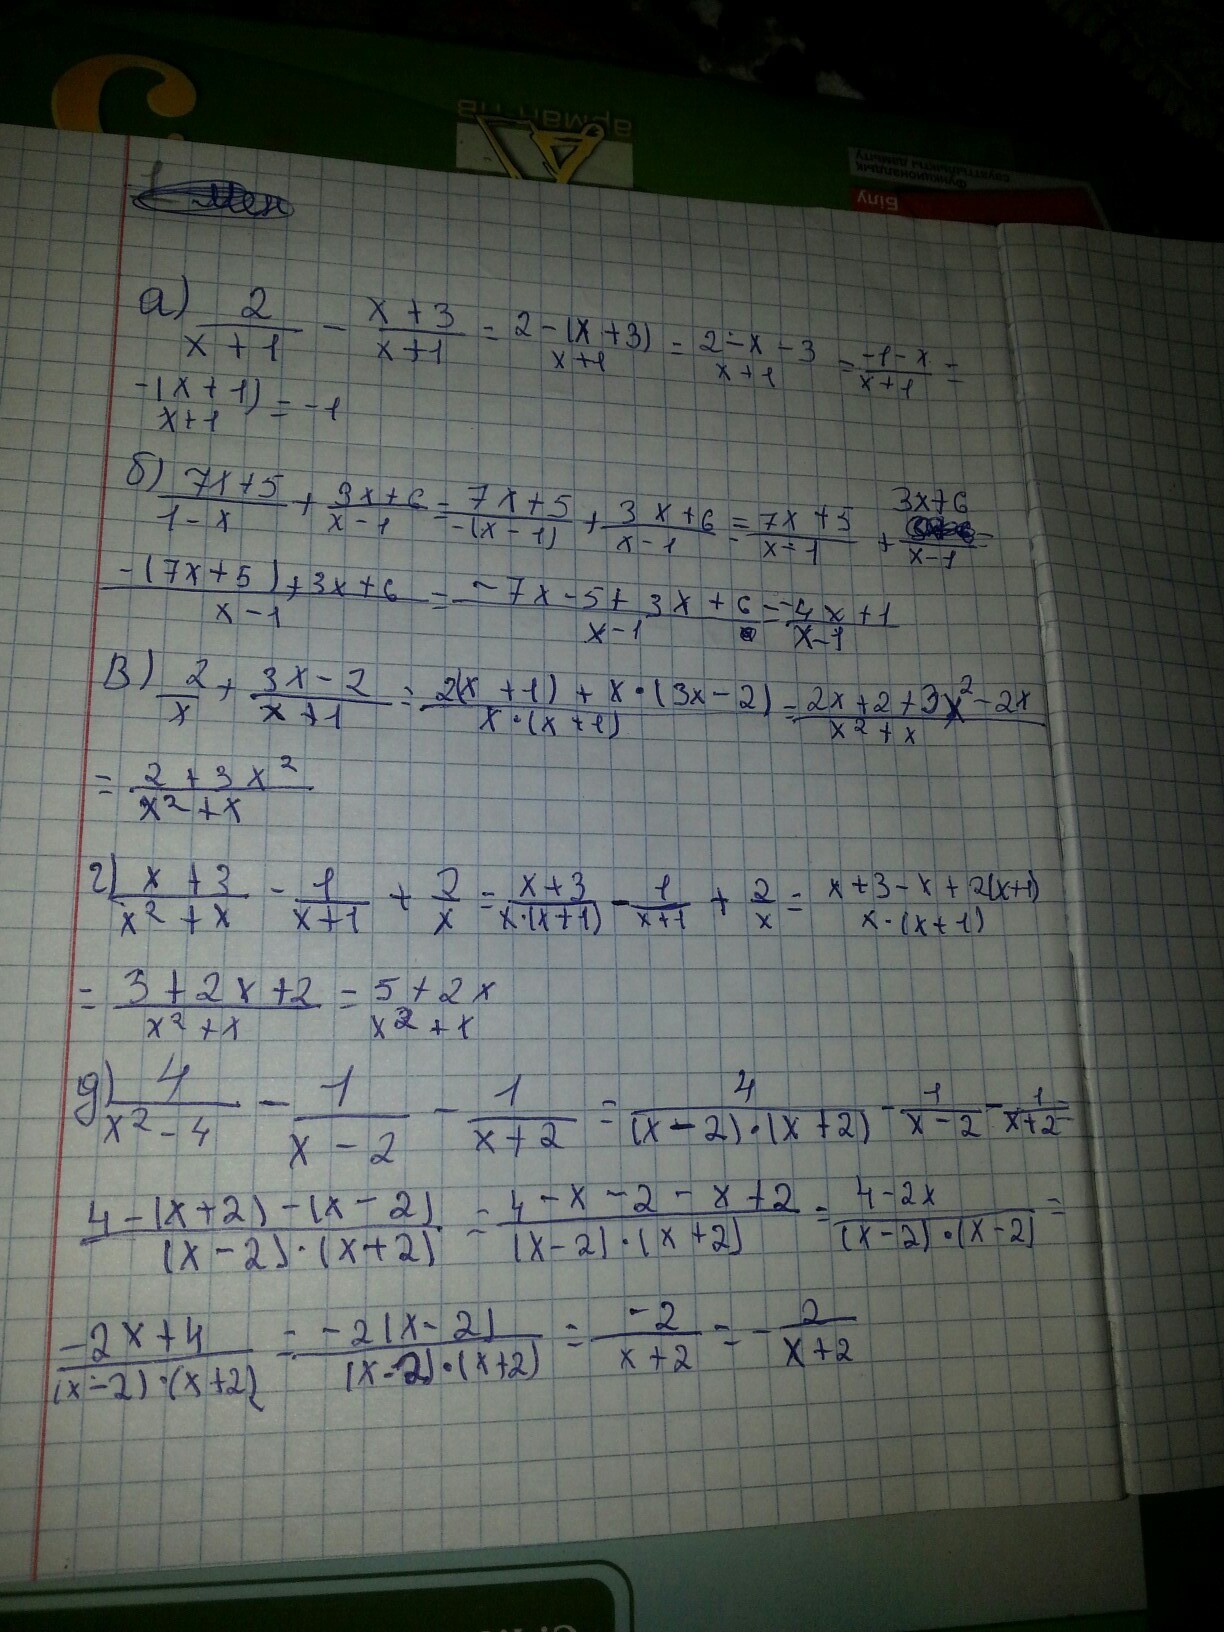 арман пв
функционалдық
сауаттылықты дамыту
Білу
а) 2/(x+1) - (x+3)/(x+1) = (2-(x+3))/(x+1) = (2-x-3)/(x+1) = (-1-x)/(x+1) =
-(x+1)/(x+1) = -1
б) (7x+5)/(1-x) + (3x+6)/(x-1) = (7x+5)/(-(x-1)) + (3x+6)/(x-1) = (7x+5)/(x-1) + (3x+6)/(x-1)
(-(7x+5)+3x+6)/(x-1) = (-7x-5+3x+6)/(x-1) = (-4x+1)/(x-1)
в) 2/x + (3x-2)/(x+1) = (2(x+1)+x·(3x-2))/(x·(x+1)) = (2x+2+3x²-2x)/(x²+x)
= (2+3x²)/(x²+x)
г) (x+3)/(x²+x) - 1/(x+1) + 2/x = (x+3)/(x·(x+1)) - 1/(x+1) + 2/x = (x+3-x+2(x+1))/(x·(x+1))
= (3+2x+2)/(x²+x) = (5+2x)/(x²+x)
д) 4/(x²-4) - 1/(x-2) - 1/(x+2) = 4/((x-2)·(x+2)) - 1/(x-2) - 1/(x+2) =
(4-(x+2)-(x-2))/((x-2)·(x+2)) = (4-x-2-x+2)/((x-2)·(x+2)) = (4-2x)/((x-2)·(x-2)) =
(-2x+4)/((x-2)·(x+2)) = (-2(x-2))/((x-2)·(x+2)) = (-2)/(x+2) = -2/(x+2)